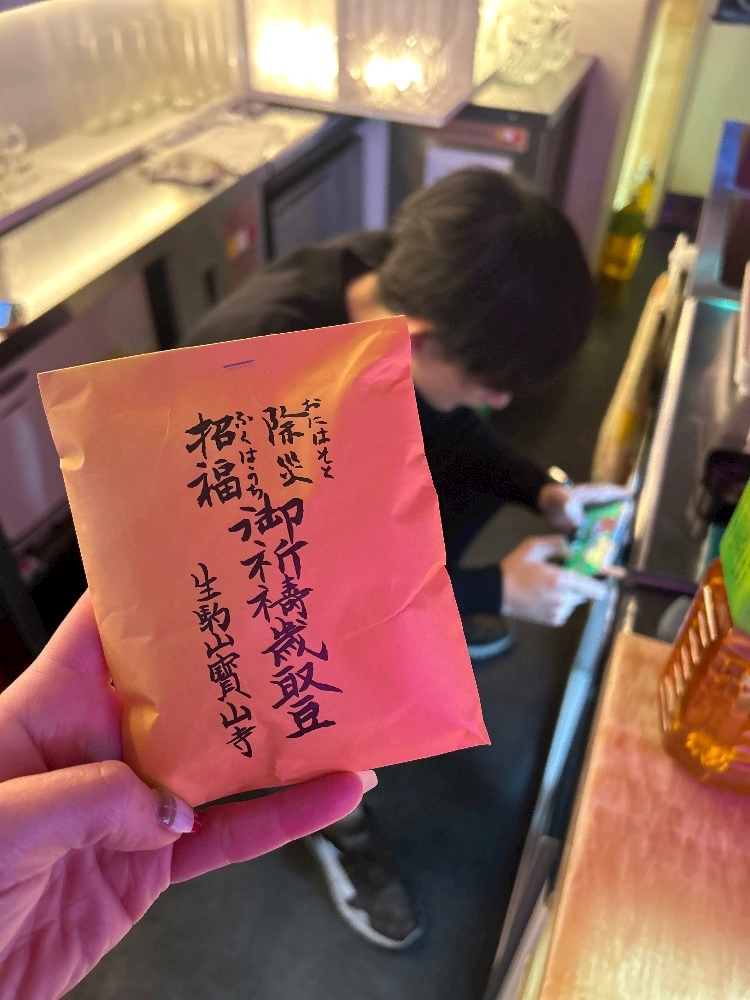 おにはそと
除災
ふくはうち
招福
御祈祷歳取豆
生駒山寳山寺